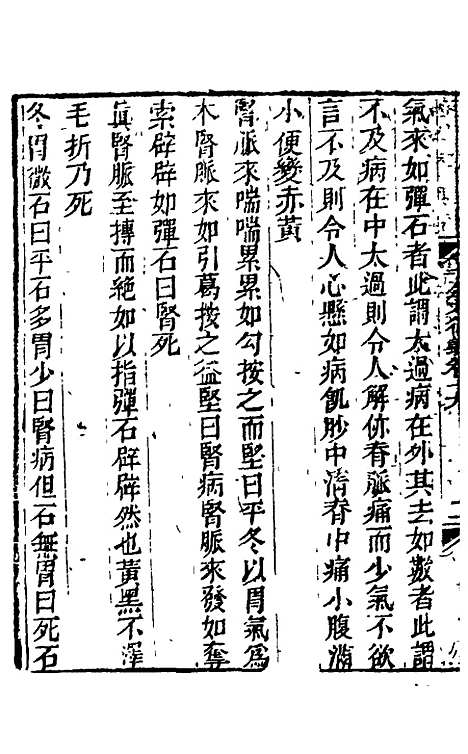 氣來如彈石者此謂太過病在外其去如數者此謂
不及病在中太過則令人解㑊脊脈痛而少氣不欲
言不及則令人心懸如病飢䏚中清脊中痛小腹滿
小便變赤黃
腎脈來喘喘累累如勾按之而堅曰平冬以胃氣爲
本腎脈來如引葛按之益堅曰腎病腎脈來發如奪
索辟辟如彈石曰腎死
真腎脈至摶而絶如以指彈石辟辟然也黃黑不澤
毛折乃死
冬胃微石曰平石多胃少曰腎病但石無胃曰死石